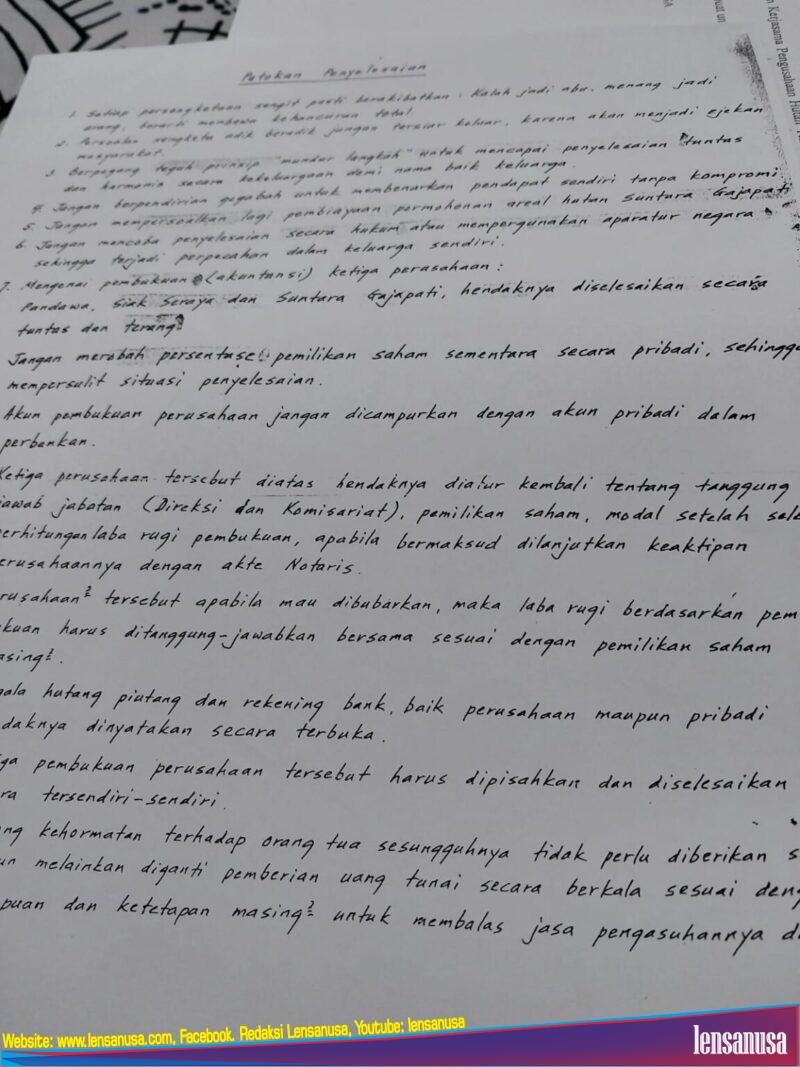 n Kerjasama Pengusahaan Hutan
Patokan Penyelesaian
1. Setiap persengketaan sengit pasti berakibatkan: Kalah jadi abu, menang jadi
arang, berarti membawa kehancuran total.
2. Persoalan sengketa adik beradik jangan tersiar keluar, karena akan menjadi ejekan
masyarakat.
3. Berpegang teguh prinsip "mundur langkah" untuk mencapai penyelesaian tuntas
dan harmonis secara kekeluargaan demi nama baik keluarga.
4. Jangan berpendirian gegabah untuk membenarkan pendapat sendiri tanpa kompromi
5. Jangan mempersoalkan lagi pembiayaan permohonan areal hutan Suntara Gajapati
6. Jangan mencoba penyelesaian secara hukum atau mempergunakan aparatur negara
sehingga terjadi perpecahan dalam keluarga sendiri.
7. Mengenai pembukuan (akuntansi) ketiga perasahaan:
Pandawa, Siak Seraya dan Suntara Gajapati, hendaknya diselesaikan secara
tuntas dan terang²
Jangan merobah persentase pemilikan saham sementara secara pribadi, sehingga
mempersulit situasi penyelesaian.
Akun pembukuan perusahaan jangan dicampurkan dengan akun pribadi dalam
perbankan.
Ketiga perusahaan tersebut diatas hendaknya diatur kembali tentang tanggung
jawab jabatan (Direksi dan Komisariat), pemilikan saham, modal setelah sel
perhitungan laba rugi pembukuan, apabila bermaksud dilanjutkan keaktipan
perusahaannya dengan akte Notaris.
rusahaan² tersebut apabila mau dibubarkan, maka laba rugi berdasarkan pem
kuan harus ditanggung-jawabkan bersama sesuai dengan pemilikan saham
asing².
ala hutang piutang dan rekening bank, baik perusahaan maupun pribadi
daknya dinyatakan secara terbuka.
ga pembukuan perusahaan tersebut harus dipisahkan dan diselesaikan
ra tersendiri-sendiri.
ng kehormatan terhadap orang tua sesungguhnya tidak perlu diberikan s
un melainkan diganti pemberian uang tunai secara berkala sesuai deng
puan dan ketetapan masing² untuk membalas jasa pengasuhannya d
Website: www.lensanusa.com, Facebook. Redaksi Lensanusa, Youtube: lensanusa
lensanusa